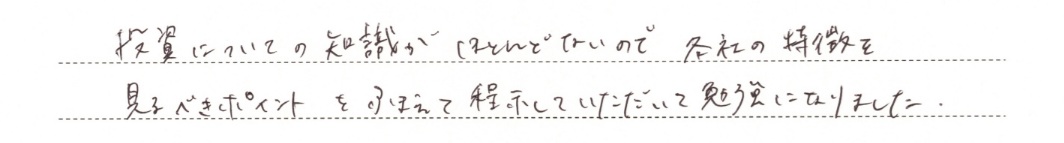 投資についての知識がほとんどないので 各社の特徴を
見るべきポイントをふまえて程示していただいて勉強になりました.